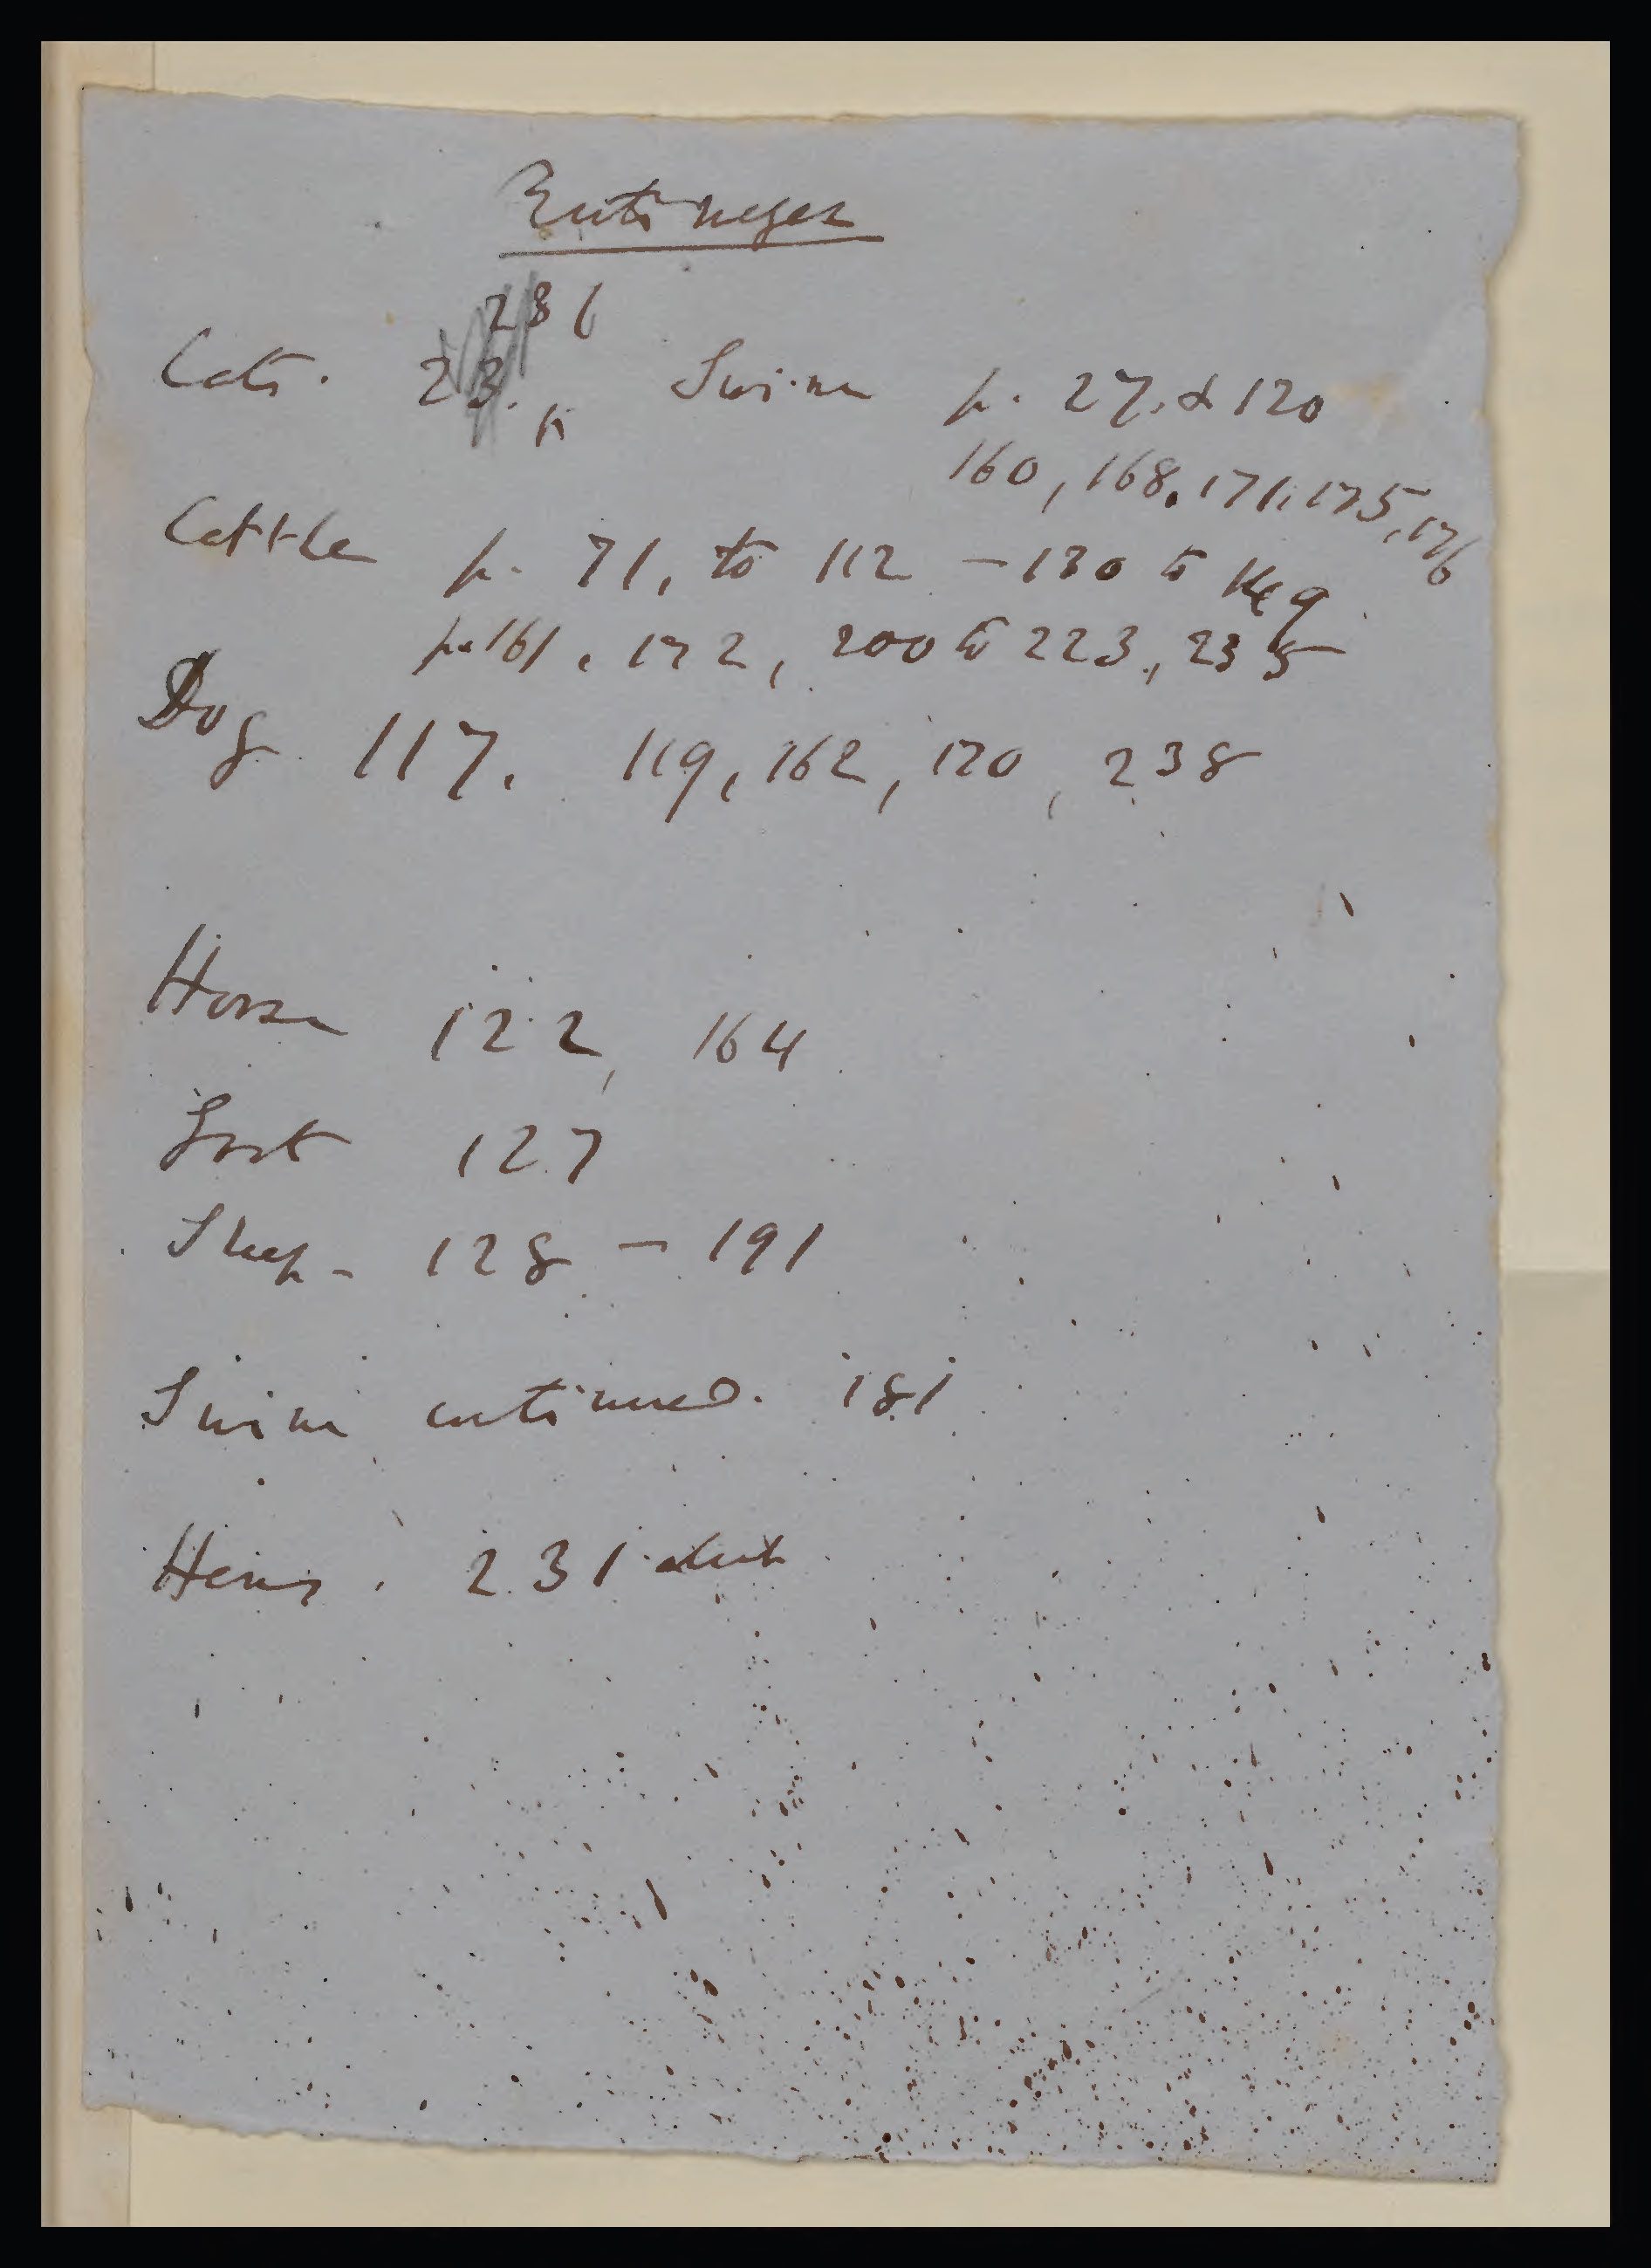 Rutimeyer
231
Cats. 23. Swine p. 27. & 120
160, 168. 171. 175, 176
Cattle p. 71, to 112 — 130 to 149
p. 161. 172, 200 to 223, 235
Dog 117. 119, 162, 170, 238
Horse 122, 164
Goat 127
Sheep - 128 — 191
Swine continued. 181
Hens. 231 duck